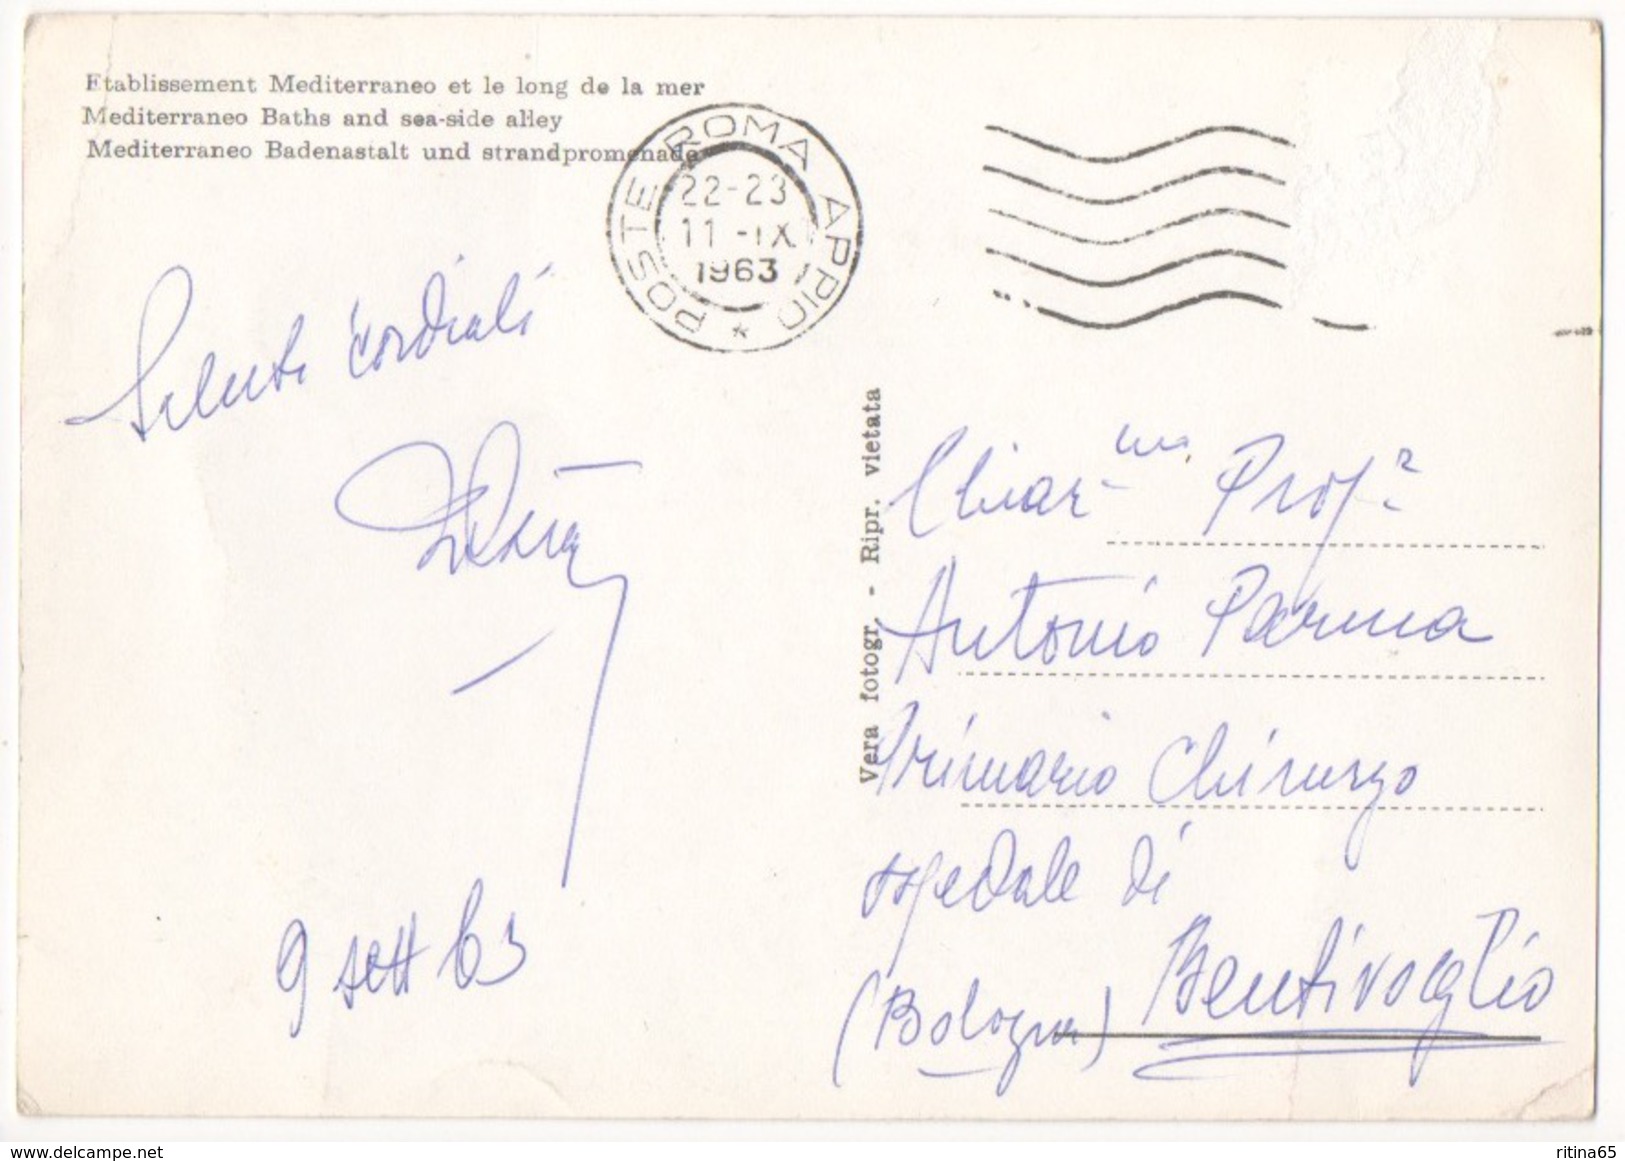 Etablissement Mediterraneo et le long de la mer
Mediterraneo Baths and sea-side alley
Mediterraneo Badenastalt und strandpromenade
POSTE ROMA APPIO *
22-23
11-IX
1963
Saluti cordiali
9 sett 63
Vera fotogr. - Ripr. vietata
Chiar.mo Prof.
Antonio Parma
Primario Chirurgo
ospedale di
Bentivoglio
(Bologna)
delcampe.net
ritina65